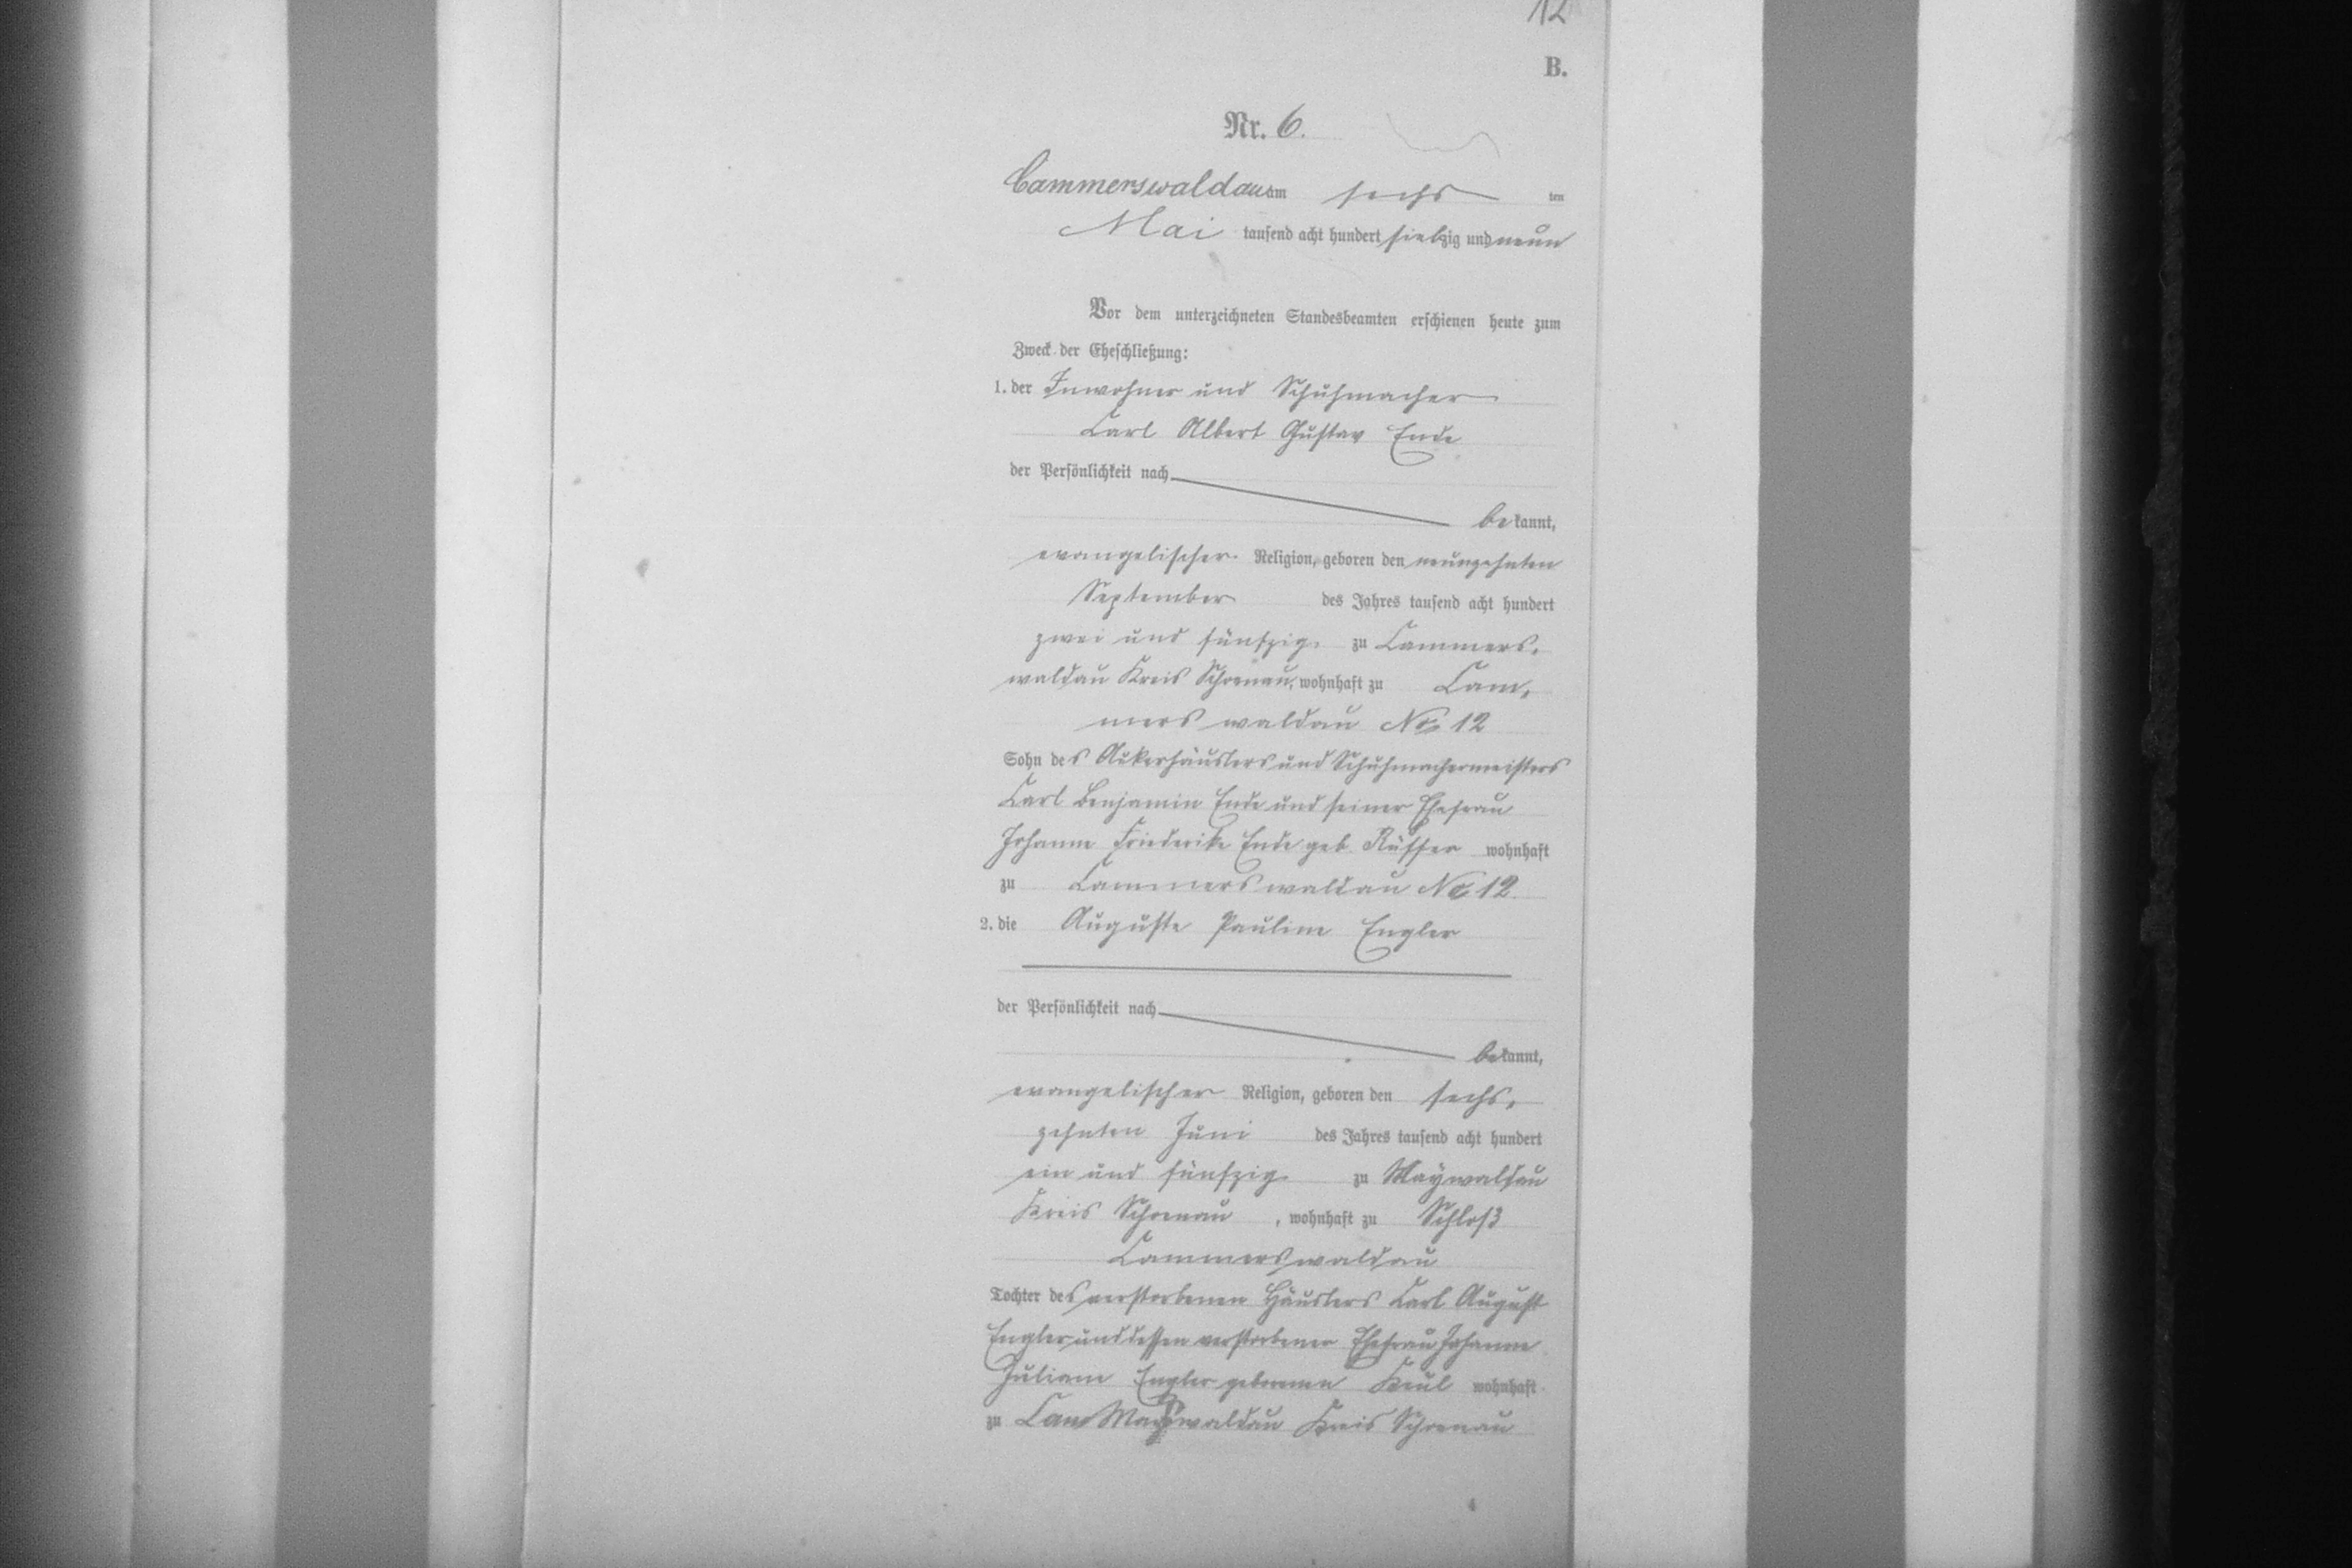 12
B.
Nr. 6.
Cammerswaldau am sechs ten
Mai tausend acht hundert siebzig und neun
Vor dem unterzeichneten Standesbeamten erschienen heute zum
Zweck der Eheschließung:
1. der Inwohner und Schuhmacher
Carl Albert Gustav Ende
der Persönlichkeit nach
bekannt,
evangelischer Religion, geboren den neunzehnten
September des Jahres tausend acht hundert
zwei und fünfzig zu Cammers-
waldau Kreis Schoenau, wohnhaft zu Cam-
merswaldau No 12
Sohn des Ackerhäuslers und Schuhmachermeisters
Carl Benjamin Ende und seiner Ehefrau
Johanne Friederike Ende geb. Rüffer wohnhaft
zu Cammerswaldau No 12.
2. die Auguste Pauline Engler
der Persönlichkeit nach
bekannt,
evangelischer Religion, geboren den sechs-
zehnten Juni des Jahres tausend acht hundert
ein und fünfzig zu Maywaldau
Kreis Schoenau, wohnhaft zu Schloß
Cammerswaldau
Tochter des verstorbenen Häuslers Carl August
Engler und dessen verstorbener Ehefrau Johanne
Juliane Engler geborenen Keul wohnhaft
zu Cam Maywaldau Kreis Schoenau